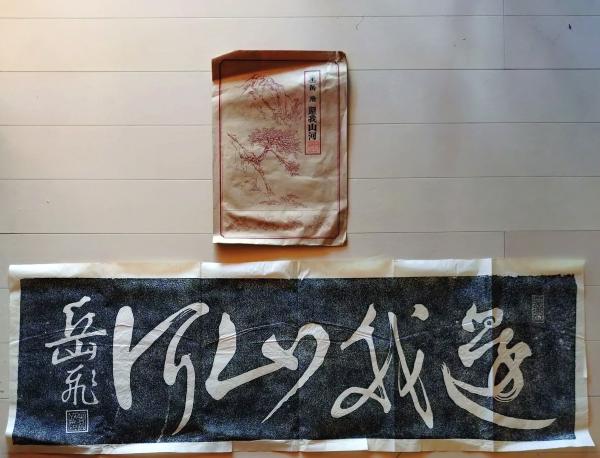 岳飛 還我山河
還我山河
岳飛